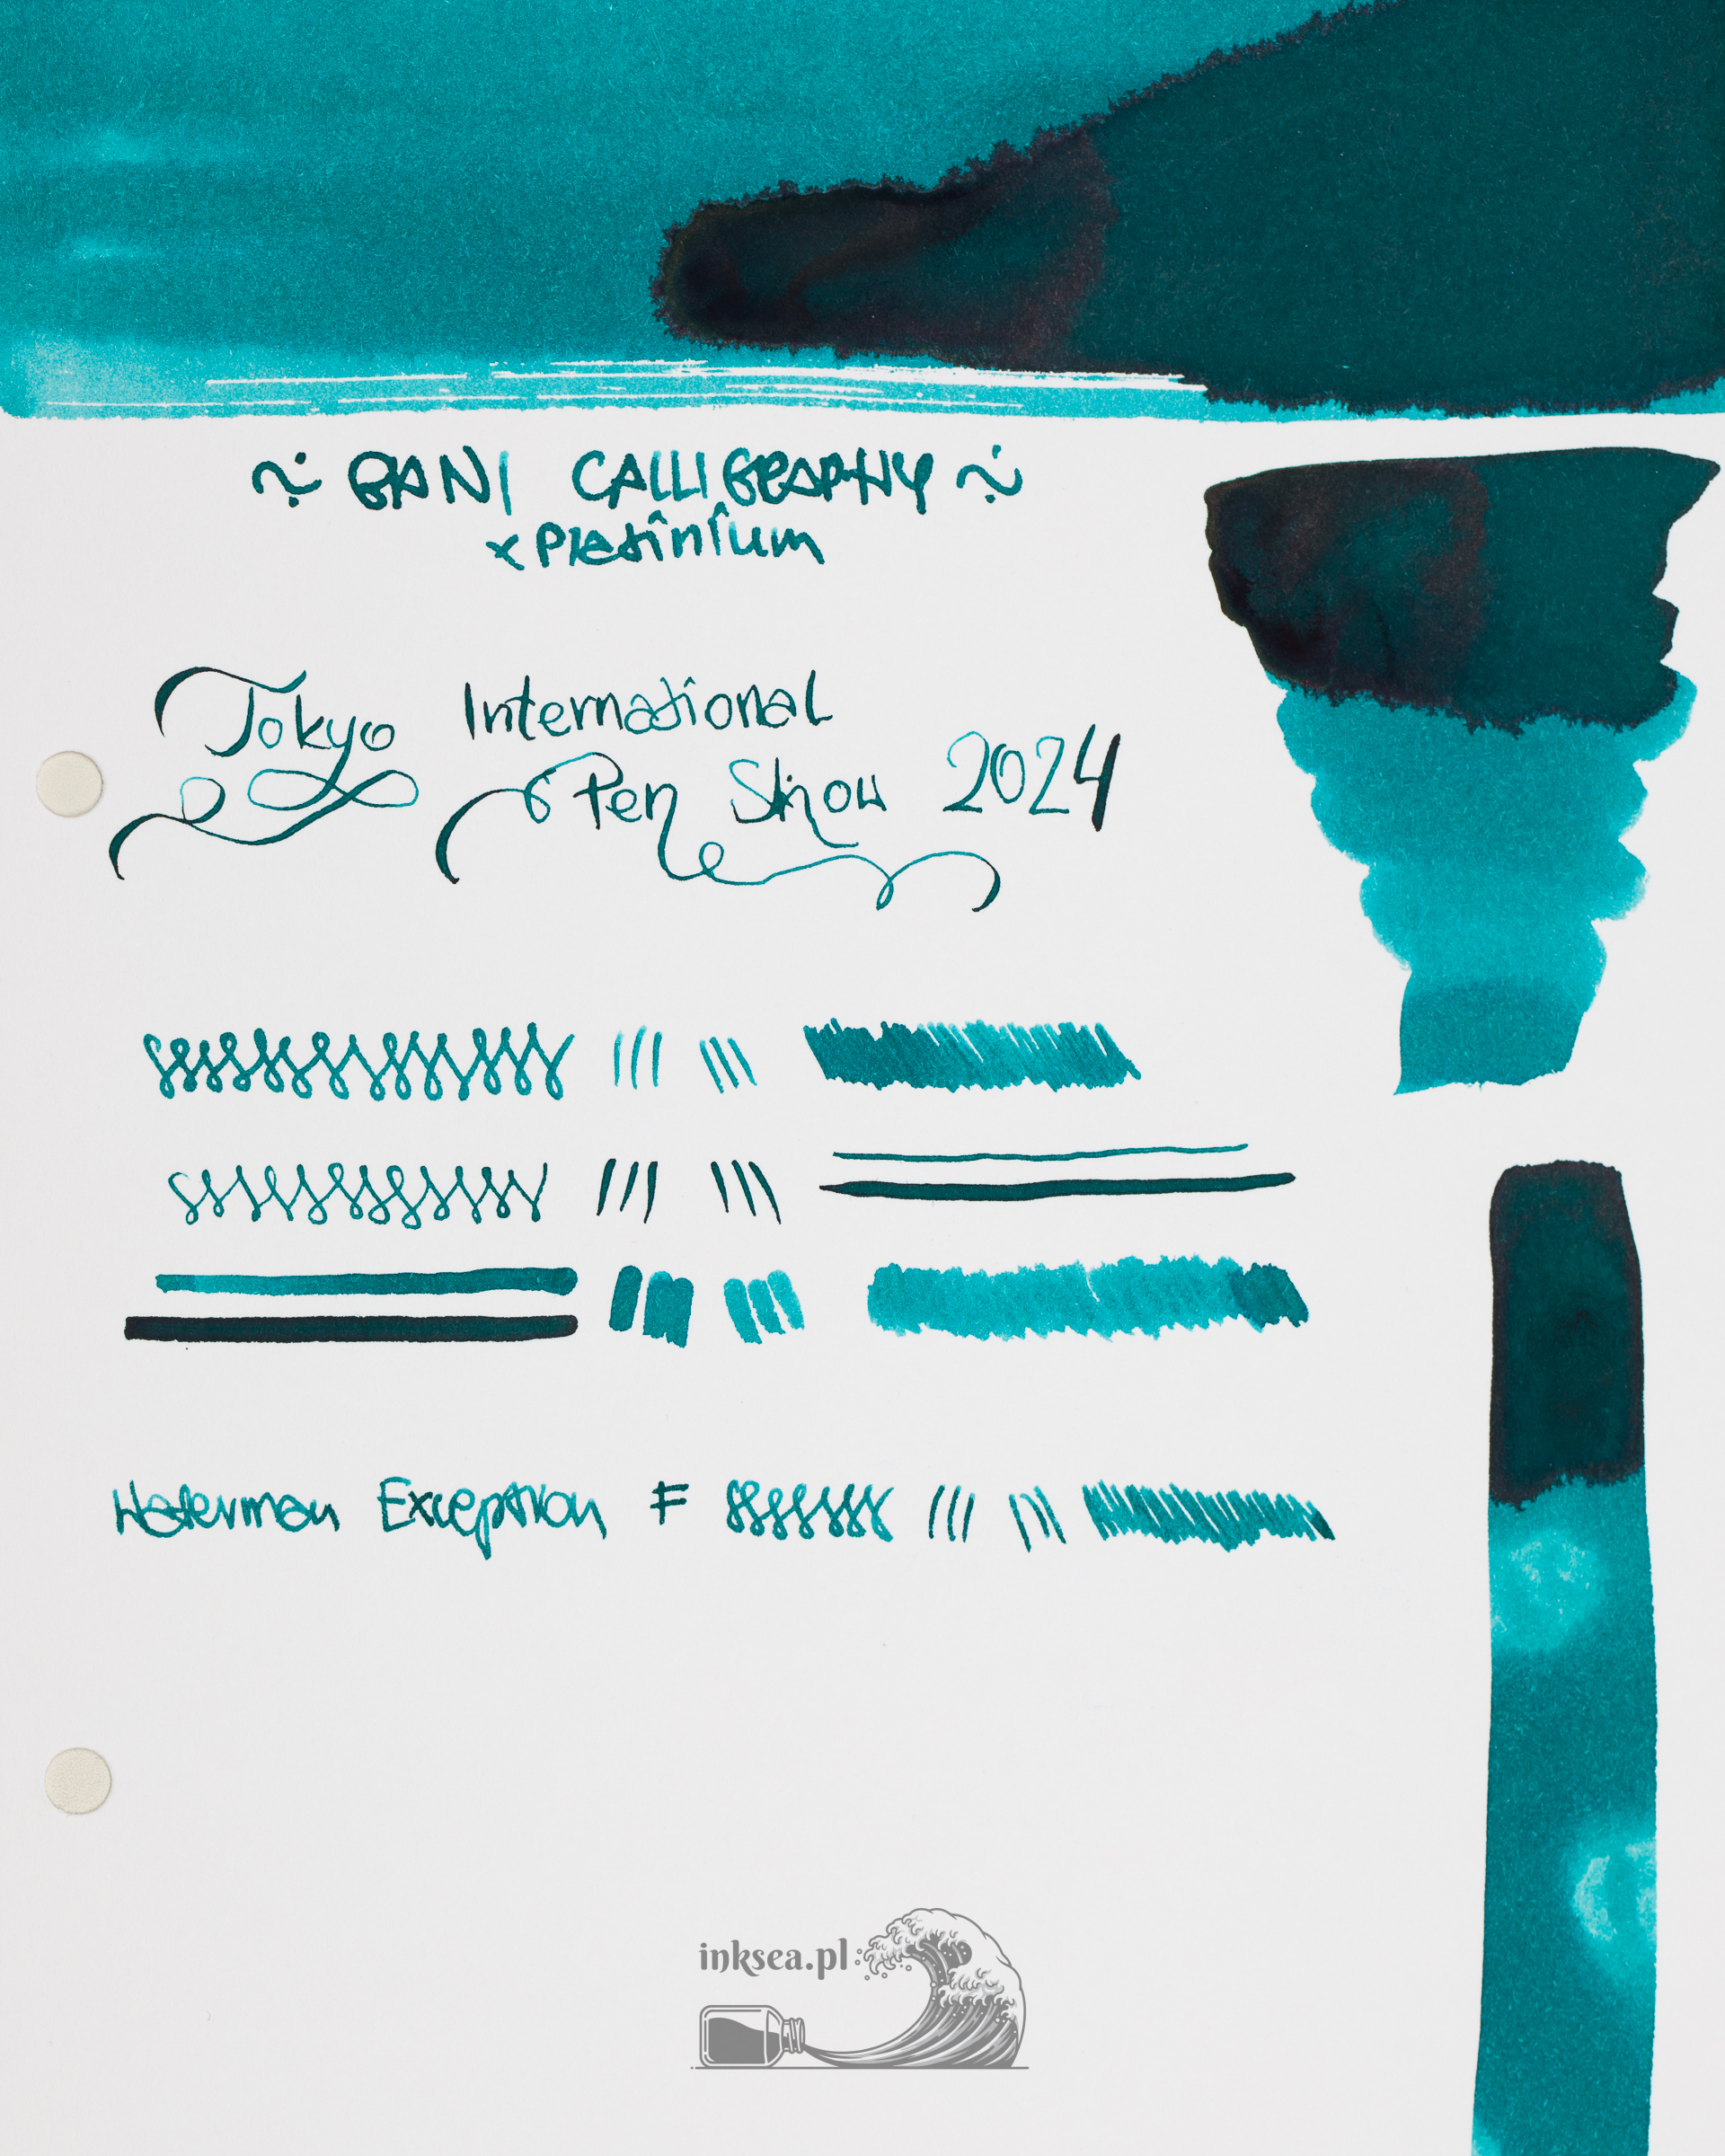 ~ BANI CALLIGRAPHY ~
x Platinium
Tokyo International
Pen Show 2024
Waterman Exception F
inksea.pl